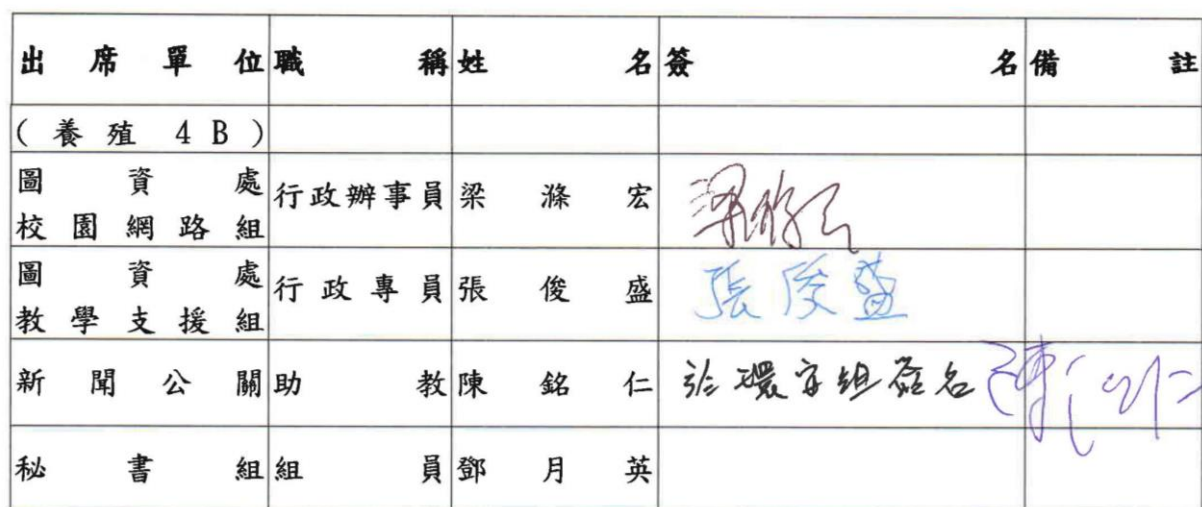 出席單位 職稱 姓名 簽名 備註
(養殖4B)
圖資處
校園網路組 行政辦事員 梁滌宏 梁滌宏
圖資處
教學支援組 行政專員 張俊盛 張俊盛
新聞公關 助教 陳銘仁 於環安組簽名 陳銘仁
秘書組 組員 鄧月英